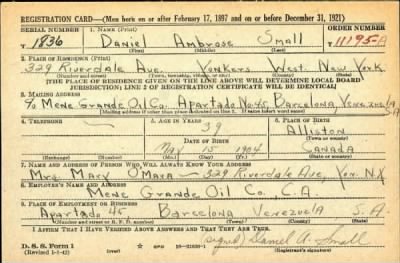 REGISTRATION CARD—(Men born on or after February 17, 1897 and on or before December 31, 1921)
SERIAL NUMBER 1. NAME (Print) ORDER NUMBER
T 1836 Daniel Ambrose Small 11195-A
(First) (Middle) (Last)
2. PLACE OF RESIDENCE (Print)
329 Riverdale Ave. Yonkers West. New York
(Number and street) (Town, township, village, or city) (County) (State)
[THE PLACE OF RESIDENCE GIVEN ON THE LINE ABOVE WILL DETERMINE LOCAL BOARD
JURISDICTION; LINE 2 OF REGISTRATION CERTIFICATE WILL BE IDENTICAL]
3. MAILING ADDRESS
c/o Mene Grande Oil Co. Apartado No 45, Barcelona, Venezuela
S.A
[Mailing address if other than place indicated on line 2. If same insert word same]
4. TELEPHONE 5. AGE IN YEARS 6. PLACE OF BIRTH
39
Alliston
DATE OF BIRTH (Town or county)
May 15 1904 Canada
(Exchange) (Number) (Mo.) (Day) (Yr.) (State or country)
7. NAME AND ADDRESS OF PERSON WHO WILL ALWAYS KNOW YOUR ADDRESS
Mrs. Mary O'Mara — 329 Riverdale Ave, Yon. N.Y
8. EMPLOYER'S NAME AND ADDRESS
Mene Grande Oil Co, C.A.
9. PLACE OF EMPLOYMENT OR BUSINESS
Apartado 45 Barcelona Venezuela S.A.
(Number and street or R. F. D. number) (Town) (County) (State)
I AFFIRM THAT I HAVE VERIFIED ABOVE ANSWERS AND THAT THEY ARE TRUE.
D. S. S. Form 1 (signed) Daniel A. Small
(Revised 1-1-42) (over) 16—21630-1 (Registrant's signature)